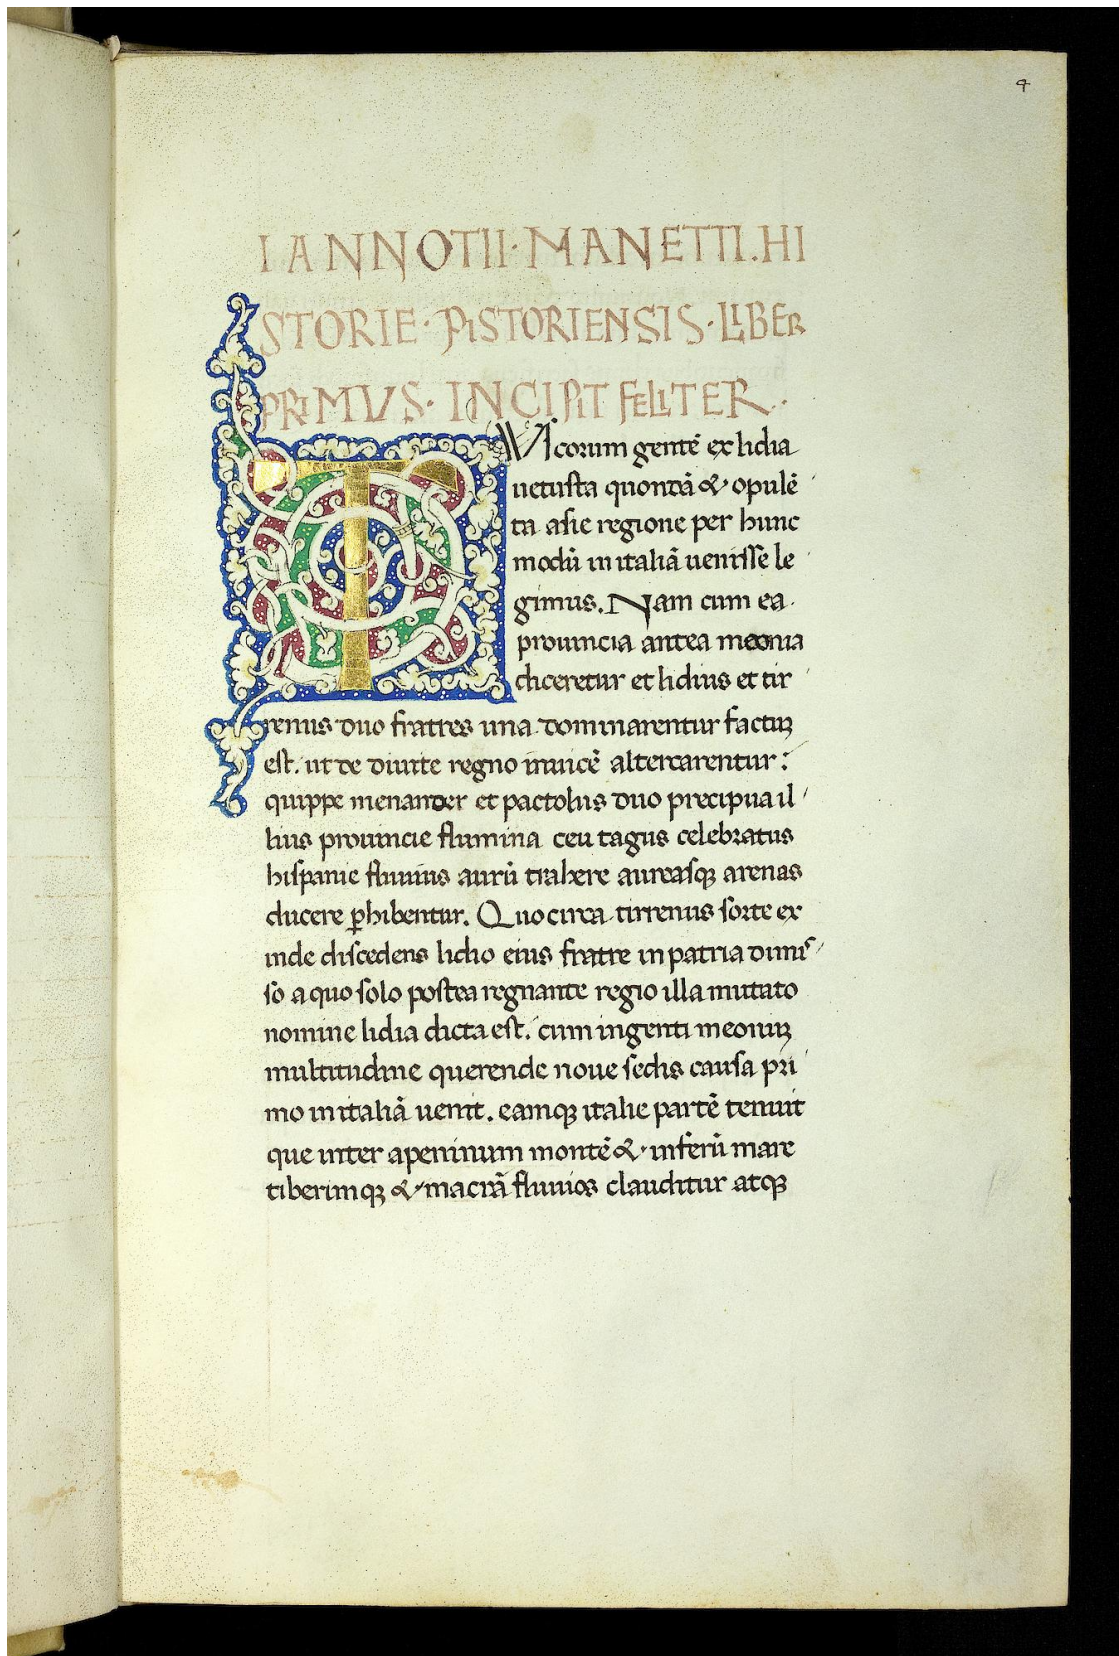 4
IANNOTII· MANETTI. HI
STORIE· PISTORIENSIS· LIBER
PRIMUS· INCIPIT FELITER·
TVScorum gentē ex lidia
uetusta quondā &· opulē
ta asie regione per hunc
modū in italiā uenisse le
gimus. Nam cum ea
prouincia antea meonia
diceretur et lidius et tir
renus duo fratres una dominarentur factuꝫ
est. ut de diuite regno inuicē altercarentur:
quippe menander et pactolus duo precipua il
lius prouincie flumina ceu tagus celebratus
hispanie fluuius aurū trahere aureasqꝫ arenas
ducere ꝑhibentur. Quocirca tirrenus sorte ex
inde discedens lidio eius fratre in patria dimis
so a quo solo postea regnante regio illa mutato
nomine lidia dicta est. cum ingenti meoniꝫ
multitudine querende noue sedis causa pri
mo in italiā uenit. eamqꝫ italie partē tenuit
que inter apeninum montē &· inferū mare
tiberimqꝫ &· macrā fluuios clauditur atqꝫ